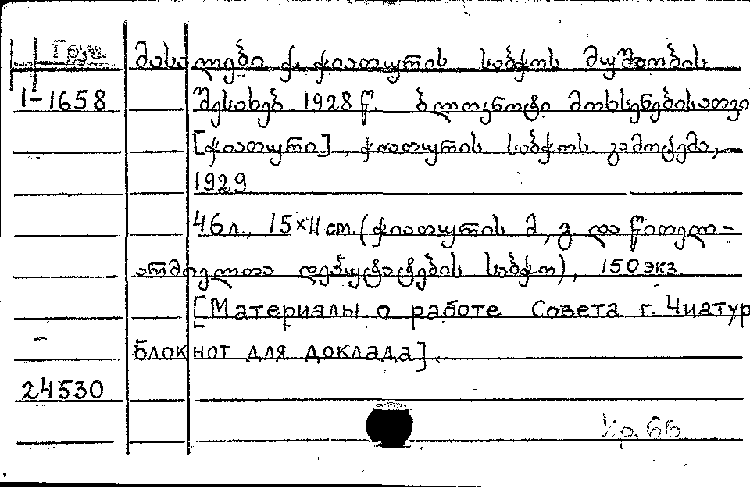 Груз
მასალები ქ. ჭიათურის საბჭოს მუშაობის
1-1658 შესახებ 1928 წ. ბლოკნოტი მოხსენებისათვი
[ჭიათური], ჭიათურის საბჭოს გამოცემა,
1929
46 л., 15×11 cm. (ჭიათურის მ, გ. და წითელ-
არმიელთა დეპუტატების საბჭო), 150 экз
[Материалы о работе Совета г. Чиатур
блокнот для доклада].
24530